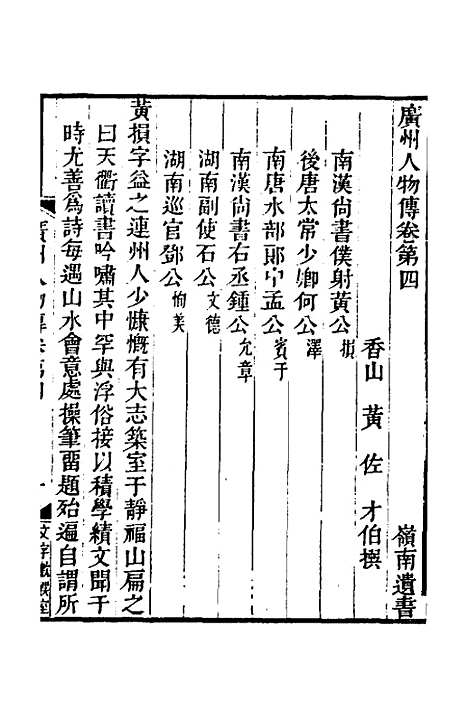 廣州人物傳卷第四
嶺南遺書
香山 黃佐 才伯撰
南漢尙書僕射黃公損
後唐太常少卿何公澤
南唐水部郎中孟公賓于
南漢尙書右丞鍾公允章
湖南副使石公文德
湖南巡官鄧公恂美
黃損字益之連州人少慷慨有大志築室于靜福山扁之
曰天衢讀書吟嘯其中罕與浮俗接以積學績文聞于
時尤善爲詩每遇山水會意處操筆畱題殆遍自謂所
廣州人物傳卷第四
一